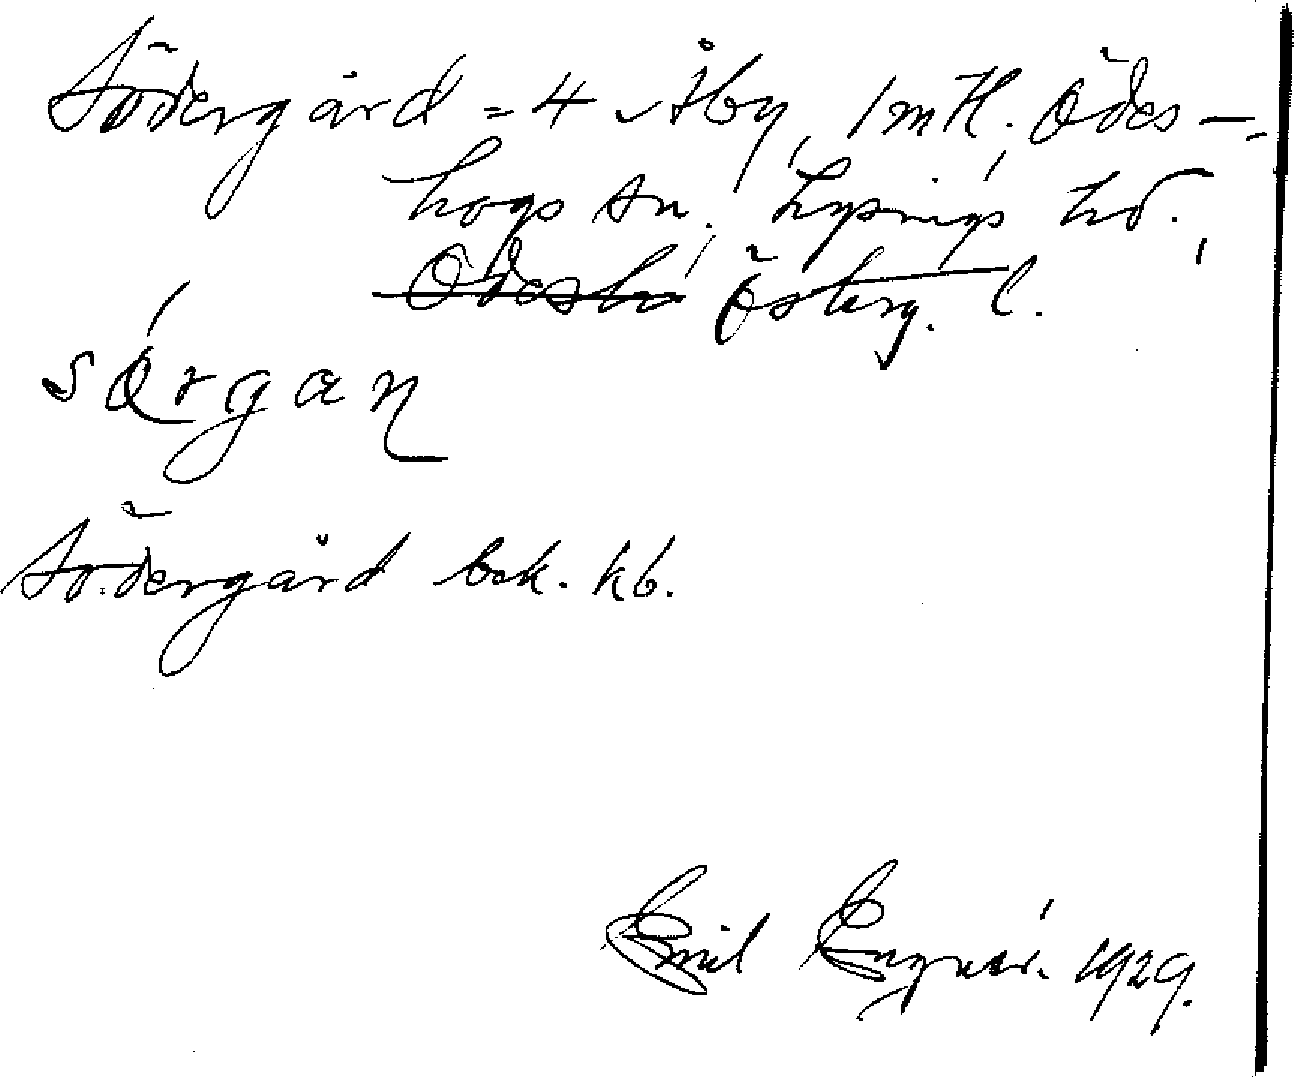 Södergård = 4 Åby, 1 mtl. Ödes-
högs sn., Lysings hd.,
Ödeshö Österg. l.
sǿrgan
Södergård bok. kb.
Emil Engnér. 1929.